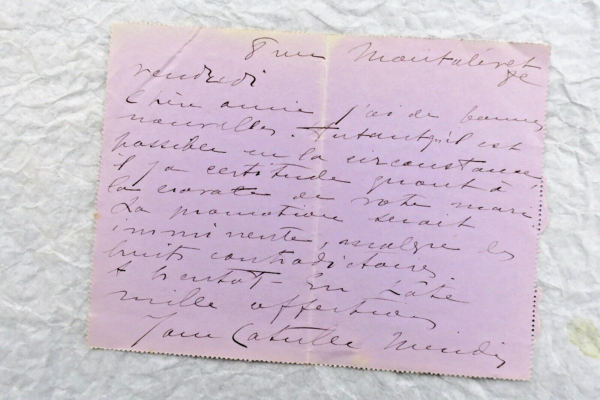 8 rue Montalivet
8e
vendredi
Chère amie j'ai de bonnes
nouvelles. Autant qu'il est
possible en la circonstance,
il y a certitude quant à
la cravate de votre mari
La promotion serait
imminente, malgré les
bruits contradictoires.
A bientôt - En hâte
mille affections
Jane Catulle Mendès